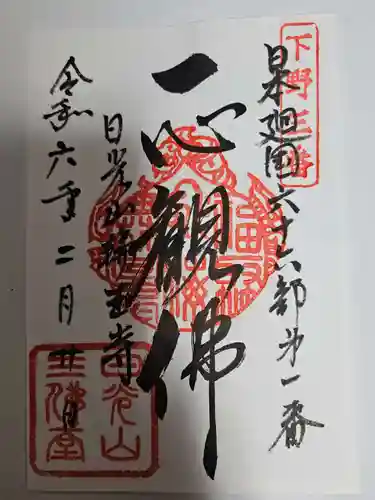 下野
日本廻国六十六部第一番
一心觀佛
日光山輪王寺
令和六年二月廿日
日光山
三佛堂